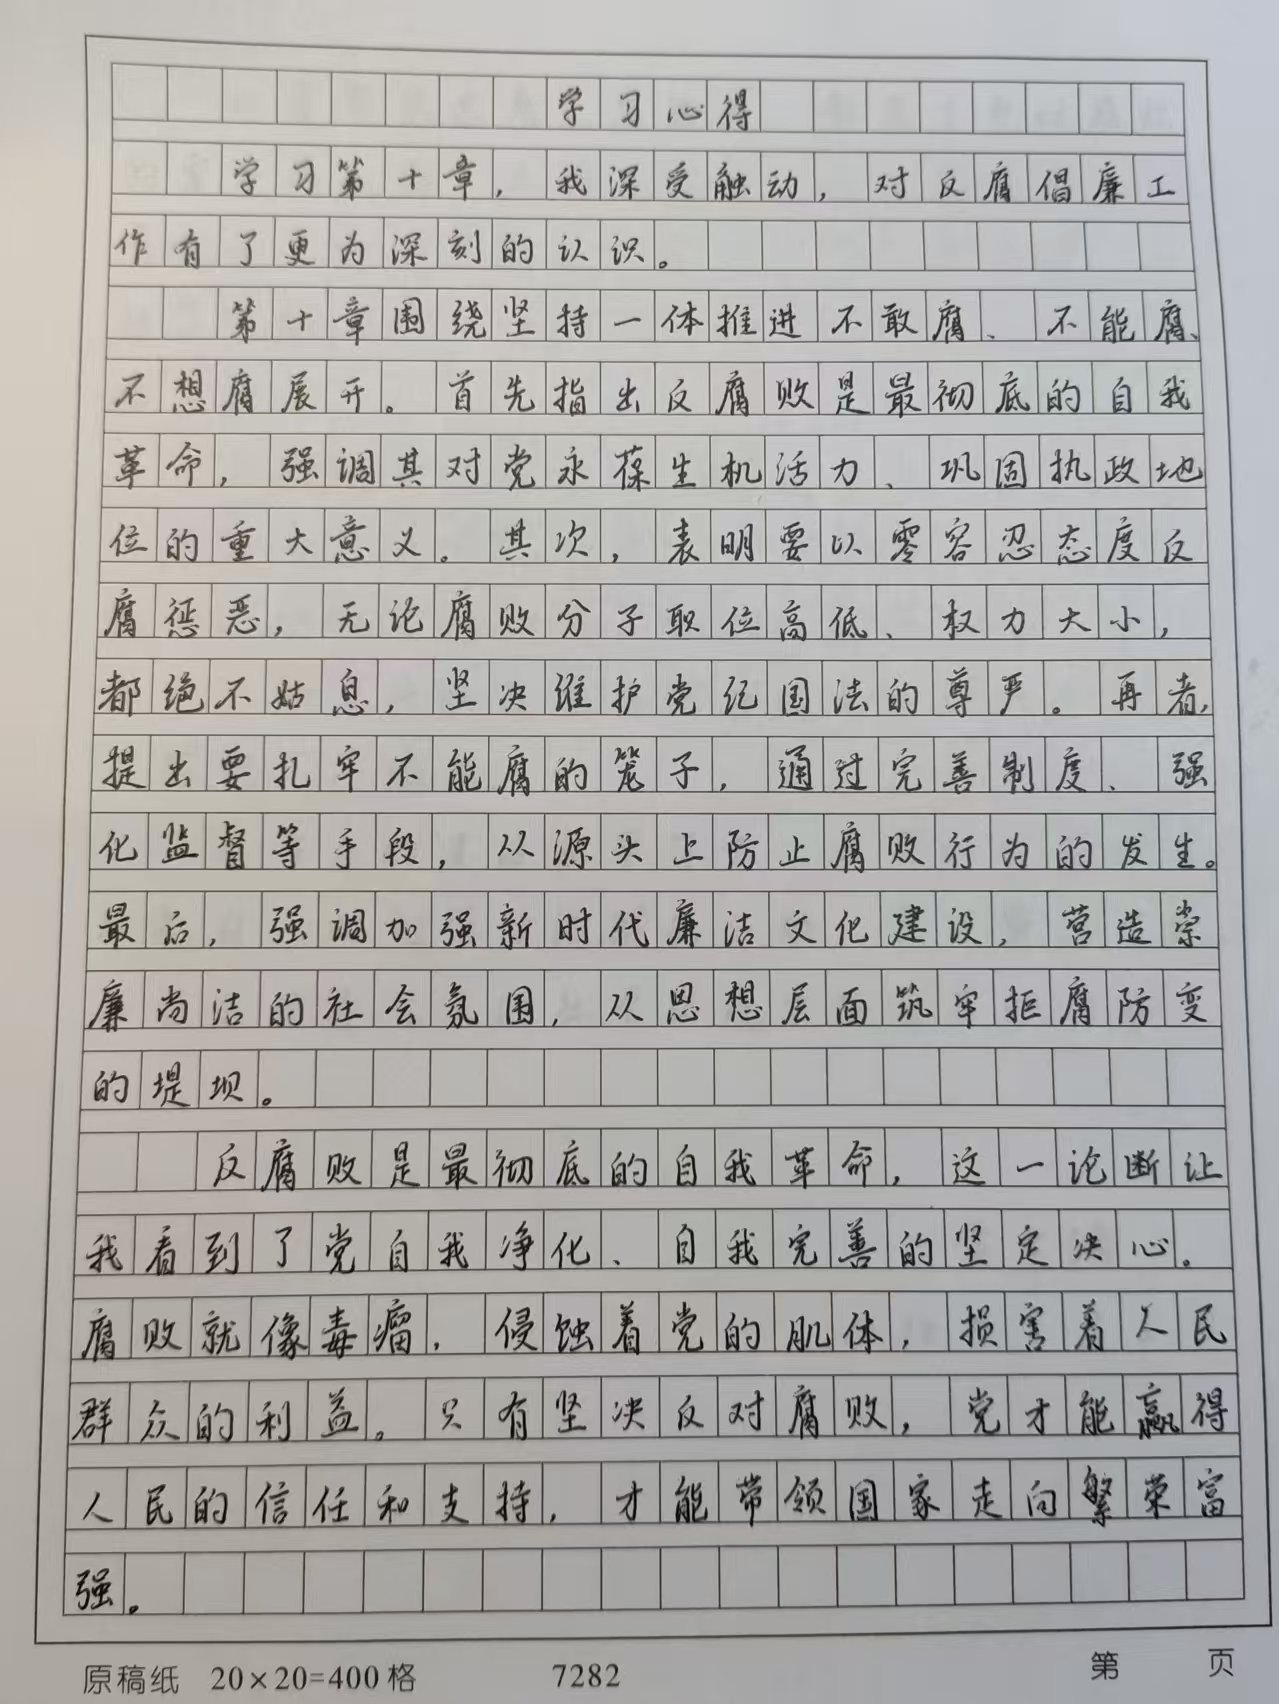 学习心得
学习第十章，我深受触动，对反腐倡廉工
作有了更为深刻的认识。
第十章围绕坚持一体推进不敢腐、不能腐、
不想腐展开。首先指出反腐败是最彻底的自我
革命，强调其对党永葆生机活力、巩固执政地
位的重大意义。其次，表明要以零容忍态度反
腐惩恶，无论腐败分子职位高低、权力大小，
都绝不姑息，坚决维护党纪国法的尊严。再者，
提出要扎牢不能腐的笼子，通过完善制度、强
化监督等手段，从源头上防止腐败行为的发生。
最后，强调加强新时代廉洁文化建设，营造崇
廉尚洁的社会氛围，从思想层面筑牢拒腐防变
的堤坝。
反腐败是最彻底的自我革命，这一论断让
我看到了党自我净化、自我完善的坚定决心。
腐败就像毒瘤，侵蚀着党的肌体，损害着人民
群众的利益。只有坚决反对腐败，党才能赢得
人民的信任和支持，才能带领国家走向繁荣富
强。
原稿纸 20×20=400格 7282 第 页